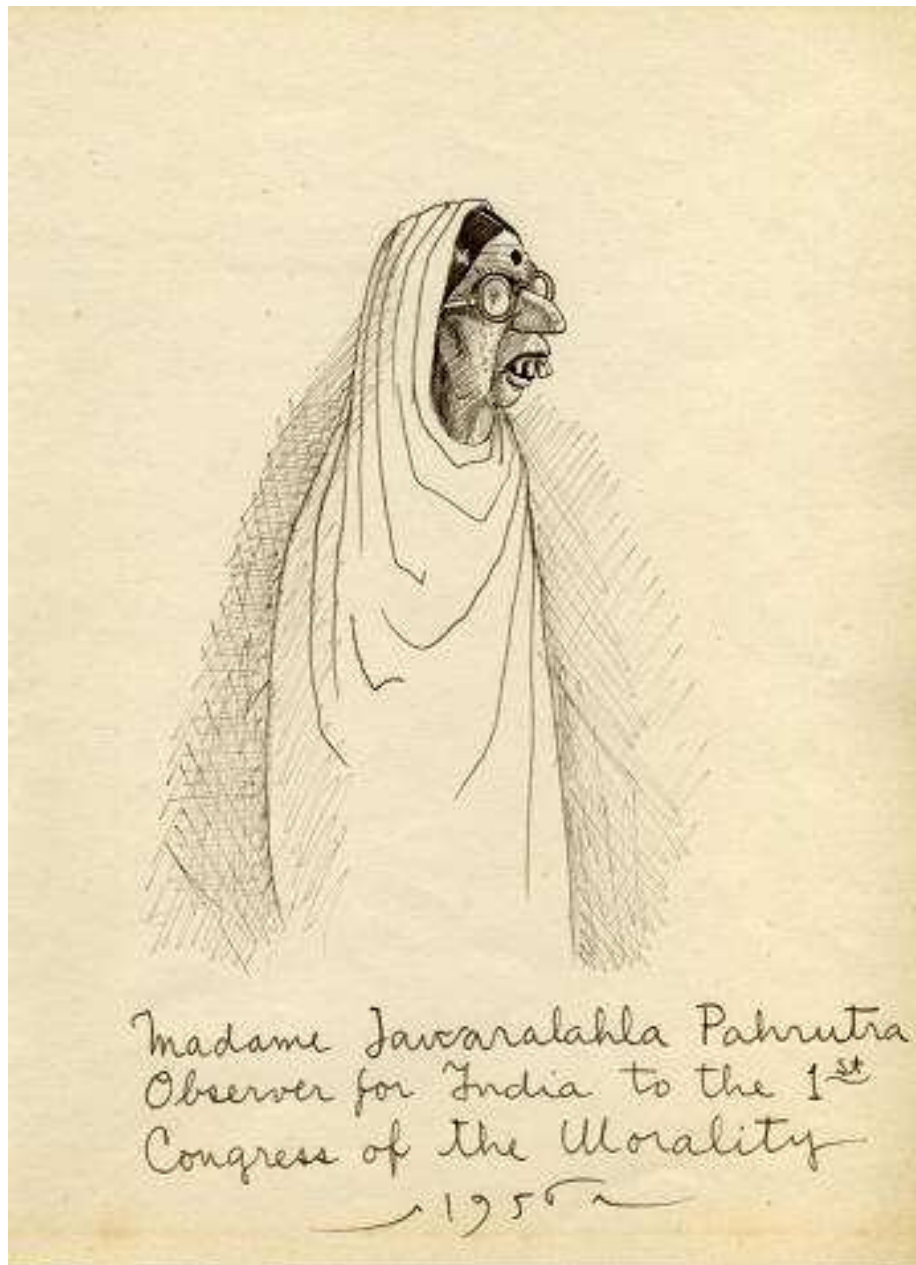 Madame Jawaralahla Pahrutra
Observer for India to the 1st
Congress of the Morality
1956